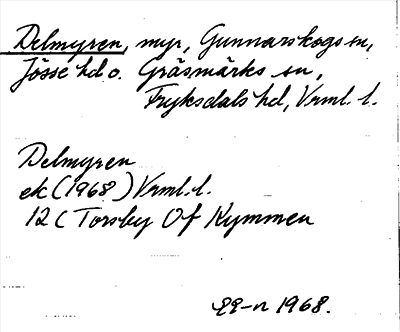 Delmyren, myr, Gunnarskogs sn,
Jösse hd o. Gräsmarks sn,
Fryksdals hd, Vrml. l.
Delmyren
ek (1968) Vrml. l.
12 C Torsby Of Kymmen
1968.